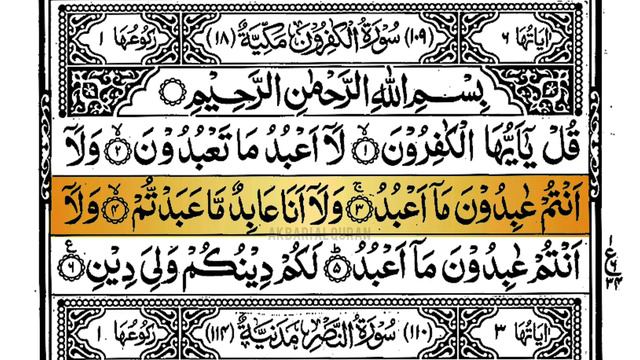 اٰیَاتُهَا ٦ (١٠٩) سُوْرَةُ الْكٰفِرُوْنَ مَكِّيَّةٌ (١٨) رُكُوْعُهَا ١
بِسْمِ اللّٰهِ الرَّحْمٰنِ الرَّحِيْمِ
قُلْ يٰٓاَيُّهَا الْكٰفِرُوْنَ ١ لَآ اَعْبُدُ مَا تَعْبُدُوْنَ ٢ وَلَآ
اَنْتُمْ عٰبِدُوْنَ مَآ اَعْبُدُ ٣ وَلَآ اَنَا عَابِدٌ مَّا عَبَدْتُّمْ ٤ وَلَآ
AKBARIALQURAN
اَنْتُمْ عٰبِدُوْنَ مَآ اَعْبُدُ ٥ لَكُمْ دِيْنُكُمْ وَلِيَ دِيْنِ ٦
ع ١ ٦ ٣٤
اٰیَاتُهَا ٣ (١١٠) سُوْرَةُ النَّصْرِ مَدَنِيَّةٌ (١١٤) رُكُوْعُهَا ١